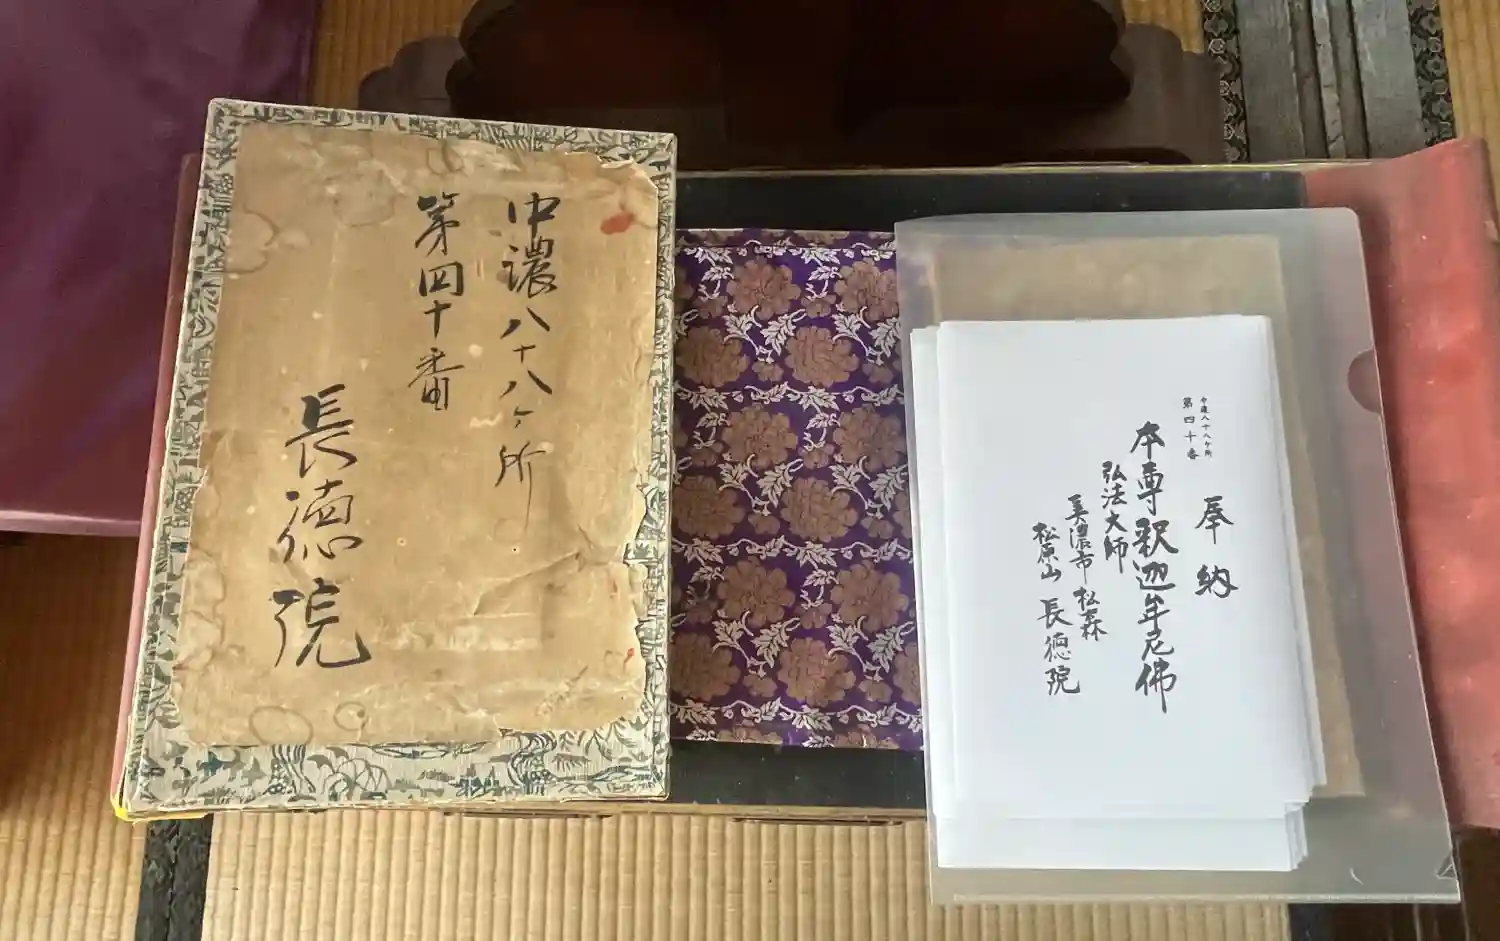 中濃八十八ヶ所
第四十番
長徳院
中濃八十八ヶ所
第四十番
奉納
本尊釈迦牟尼佛
弘法大師
美濃市松森
松原山 長徳院